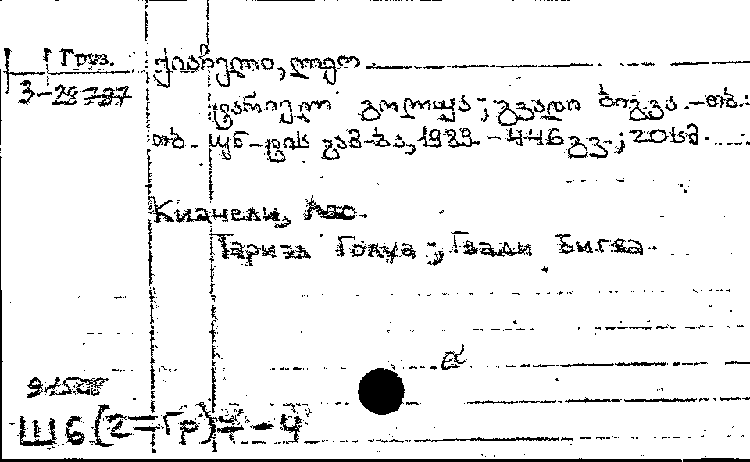 Груз.
3-28787
ქიაჩელი, ლეო
ტარიელ გოლუა; გვადი ბიგვა. - თბ.:
თბ. უნ-ტის გამ-ბა, 1989. - 446 გვ.; 20სმ.
Киачели, Лео.
Тариэл Голуа; Гвади Бигва.
Ш6(2=Гр)7-4